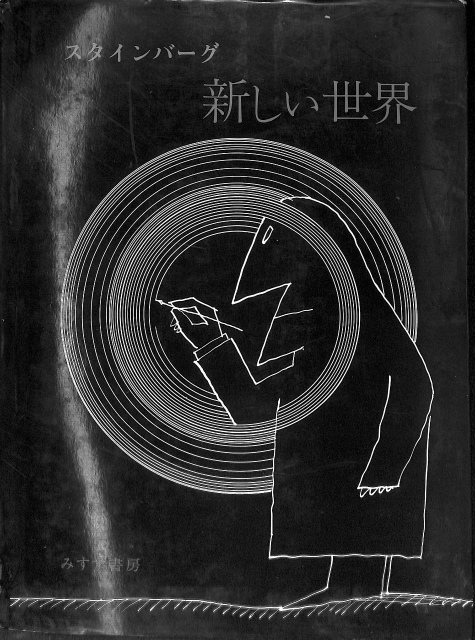 スタインバーグ
新しい世界
みすず書房